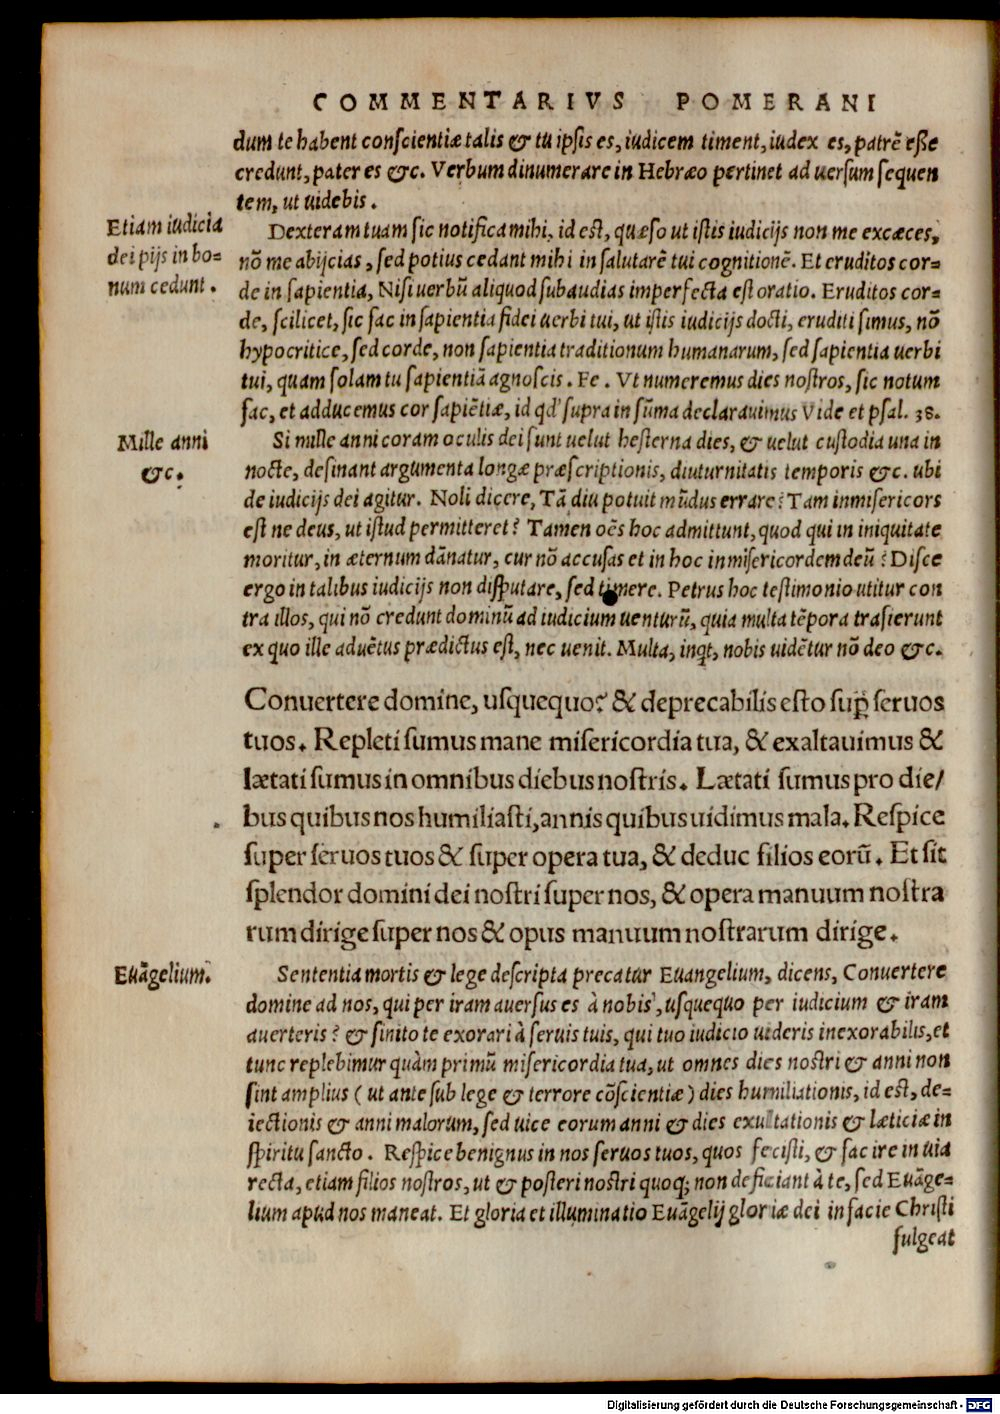 COMMENTARIVS POMERANI
dum te habent conscientiæ talis & tu ipsis es, iudicem timent, iudex es, patrē esse
credunt, pater es &c. Verbum dinumerare in Hebræo pertinet ad uersum sequen
tem, ut uidebis.
Etiam iudicia
dei pijs in bo=
num cedunt.
Dexteram tuam sic notifica mihi, id est, quæso ut istis iudicijs non me excæces,
nō me abijcias, sed potius cedant mihi in salutarē tui cognitionē. Et eruditos cor=
de in sapientia, Nisi uerbū aliquod subaudias imperfecta est oratio. Eruditos cor=
de, scilicet, sic fac in sapientia fidei uerbi tui, ut istis iudicijs docti, eruditi simus, nō
hypocritice, sed corde, non sapientia traditionum humanarum, sed sapientia uerbi
tui, quam solam tu sapientiā agnoscis. Fe. Vt numeremus dies nostros, sic notum
fac, et adducemus cor sapiētiæ, id qd' supra in sūma declarauimus Vide et psal. 38.
Mille anni
&c.
Si mille anni coram oculis dei sunt uelut hesterna dies, & uelut custodia una in
nocte, desinant argumenta longæ præscriptionis, diuturnitatis temporis &c. ubi
de iudicijs dei agitur. Noli dicere, Tā diu potuit mūdus errare? Tam inmisericors
est ne deus, ut istud permitteret? Tamen oēs hoc admittunt, quod qui in iniquitate
moritur, in æternum dānatur, cur nō accusas et in hoc inmisericordem deū? Disce
ergo in talibus iudicijs non disputare, sed timere. Petrus hoc testimonio utitur con
tra illos, qui nō credunt dominū ad iudicium uenturū, quia multa tēpora trāsierunt
ex quo ille aduētus prædictus est, nec uenit. Multa, inqt, nobis uidētur nō deo &c.
Conuertere domine, usquequo? & deprecabilis esto sup seruos
tuos. Repleti sumus mane misericordia tua, & exaltauimus &
lætati sumus in omnibus diebus nostris. Lætati sumus pro die/
bus quibus nos humiliasti, annis quibus uidimus mala. Respice
super seruos tuos & super opera tua, & deduc filios eorū. Et sit
splendor domini dei nostri super nos, & opera manuum nostra
rum dirige super nos & opus manuum nostrarum dirige.
Euāgelium.
Sententia mortis & lege descripta precatur Euangelium, dicens, Conuertere
domine ad nos, qui per iram auersus es à nobis, usquequo per iudicium & iram
auerteris? & sinito te exorari à seruis tuis, qui tuo iudicio uideris inexorabilis, et
tunc replebimur quàm primū misericordia tua, ut omnes dies nostri & anni non
sint amplius (ut ante sub lege & terrore cōscientiæ) dies humiliationis, id est, de=
iectionis & anni malorum, sed uice eorum anni & dies exultationis & læticiæ in
spiritu sancto. Respice benignus in nos seruos tuos, quos fecisti, & fac ire in uia
recta, etiam filios nostros, ut & posteri nostri quoq; non deficiant à te, sed Euāge=
lium apud nos maneat. Et gloria et illuminatio Euāgelij gloriæ dei in facie Christi
fulgeat
Digitalisierung gefördert durch die Deutsche Forschungsgemeinschaft - DFG